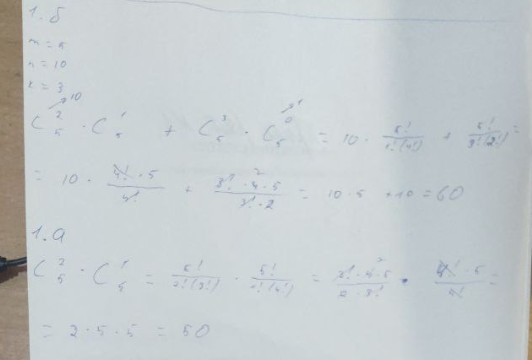 1.б
m = 5
n = 10
k = 3
C₅² ↗10 · C₅¹ + C₅³ · C₅⁰ ↗1 = 10 · 5!/1!(4!) + 5!/3!(2!) =
= 10 · 4!·5/4! + 3!·4·5/3!·2 = 10·5 + 10 = 60
1.а
C₅² · C₅¹ = 5!/2!(3!) · 5!/1!(4!) = 3!·4·5/2·3! · 4!·5/4! =
= 2·5·5 = 50